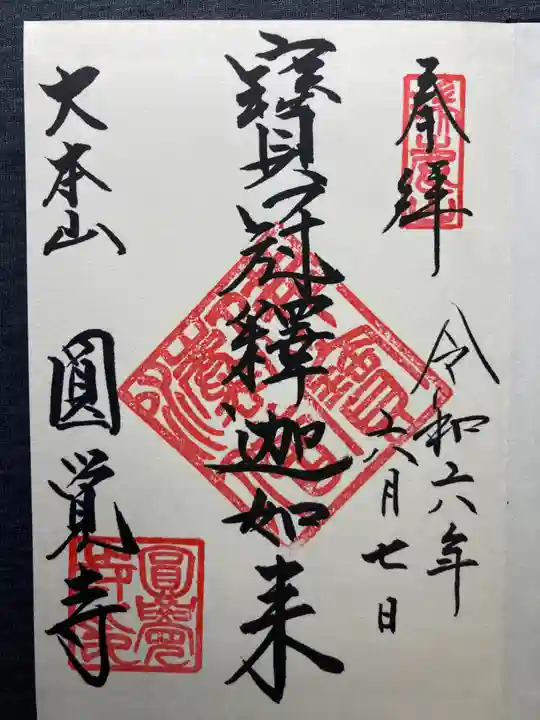 奉拝
令和六年
六月七日
寳冠釋迦如来
大本山 圓覚寺